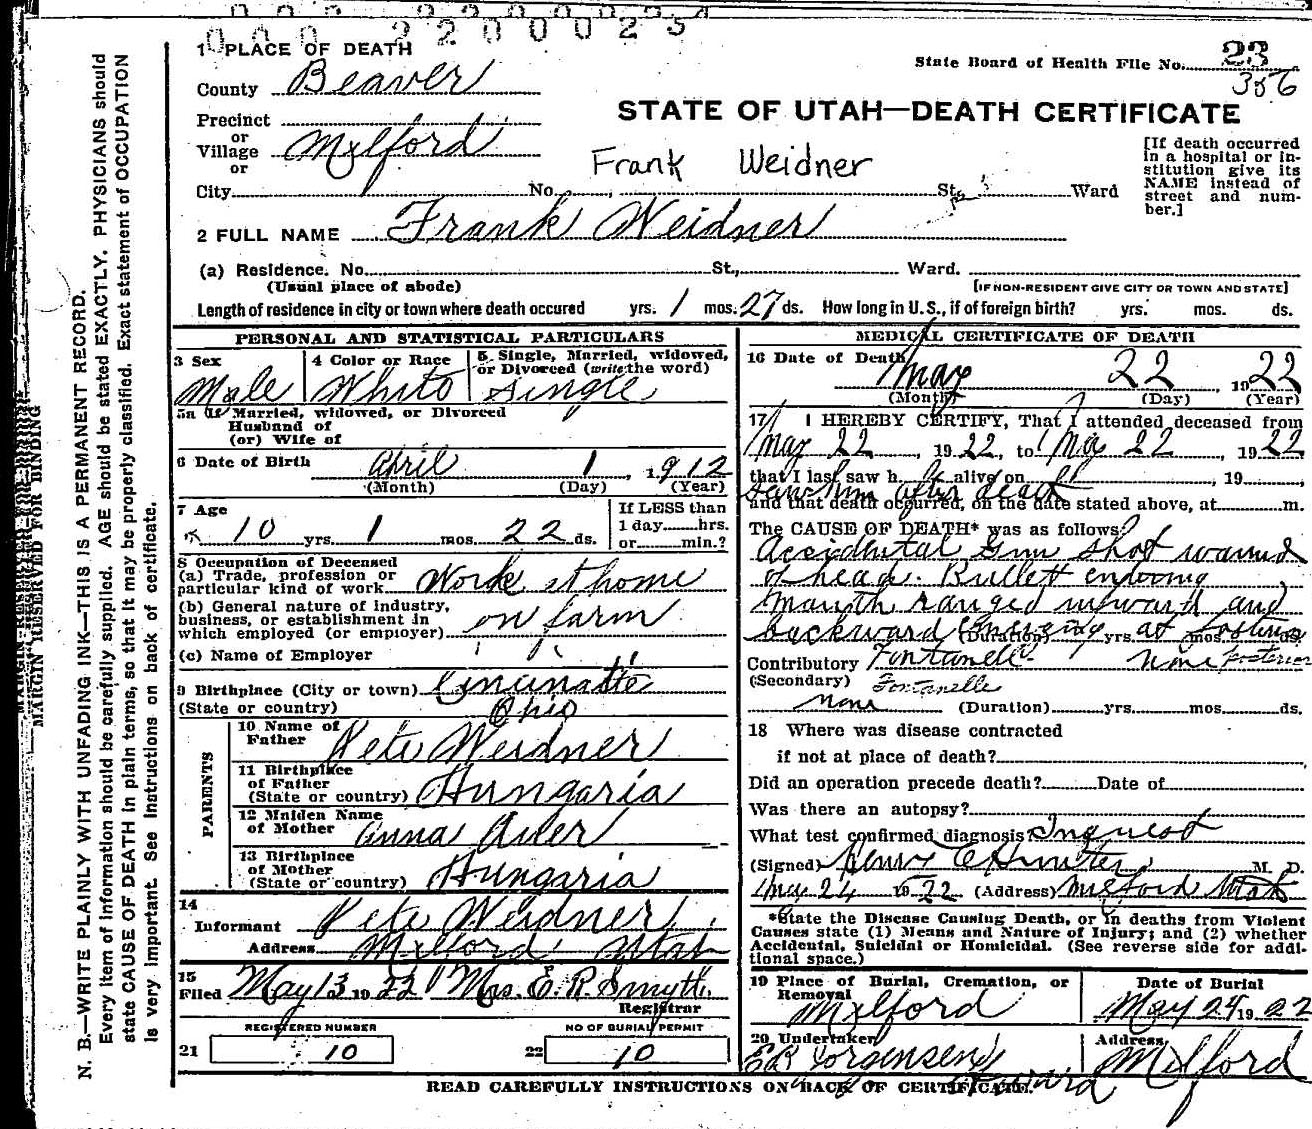 0 0 0 2 2 0 0 0 2 3
1 PLACE OF DEATH
State Board of Health File No. 23
356
County Beaver
STATE OF UTAH—DEATH CERTIFICATE
Precinct
or
Village Milford
or
Frank Weidner
[If death occurred in a hospital or institution give its NAME instead of street and number.]
City No. St. Ward
2 FULL NAME Frank Weidner
(a) Residence. No. St., Ward.
(Usual place of abode) [IF NON-RESIDENT GIVE CITY OR TOWN AND STATE]
Length of residence in city or town where death occured yrs. 1 mos. 27 ds. How long in U.S., if of foreign birth? yrs. mos. ds.
PERSONAL AND STATISTICAL PARTICULARS
3 Sex 4 Color or Race 5 Single, Married, widowed, or Divorced (write the word)
Male White Single
5a If Married, widowed, or Divorced
Husband of
(or) Wife of
6 Date of Birth April 1, 1912
(Month) (Day) (Year)
7 Age 10 yrs. 1 mos. 22 ds.
If LESS than
1 day hrs.
or min.?
8 Occupation of Deceased
(a) Trade, profession or particular kind of work Work at home
(b) General nature of industry, business, or establishment in which employed (or employer) on farm
(c) Name of Employer
9 Birthplace (City or town) Cincinatte
(State or country) Ohio
PARENTS
10 Name of Father Pete Weidner
11 Birthplace of Father (State or country) Hungaria
12 Maiden Name of Mother Anna
13 Birthplace of Mother (State or country) Hungaria
14
Informant Pete Weidner
Address Milford Utah
15
Filed May 13 1922 Mrs. E. R. Smyth
Registrar
REGISTERED NUMBER NO OF BURIAL PERMIT
21 10 22 10
MEDICAL CERTIFICATE OF DEATH
16 Date of Death May 22, 1922
(Month) (Day) (Year)
17 I HEREBY CERTIFY, That I attended deceased from
May 22, 1922, to May 22, 1922
that I last saw h alive on , 19
saw him after death
and that death occurred, on the date stated above, at m.
The CAUSE OF DEATH* was as follows:
Accidental Gun shot wound
of head. Bullett entering
Mouth ranged upward and
backward emerging at posterior
(Duration) yrs. mos. ds.
Contributory Fontanelle none Posterior
(Secondary) Fontanelle
none (Duration) yrs. mos. ds.
18 Where was disease contracted
if not at place of death?
Did an operation precede death? Date of
Was there an autopsy?
What test confirmed diagnosis? Inquest
(Signed) Hunter M. D.
May 24 1922 (Address) Milford Utah
*State the Disease Causing Death, or in deaths from Violent
Causes state (1) Means and Nature of Injury; and (2) whether
Accidental, Suicidal or Homicidal. (See reverse side for additional space.)
19 Place of Burial, Cremation, or Removal Date of Burial
Milford May 24 1922
20 Undertaker Address
E R Jorgensen Milford
READ CAREFULLY INSTRUCTIONS ON BACK OF CERTIFICATE.
MARGIN RESERVED FOR BINDING
N. B.—WRITE PLAINLY WITH UNFADING INK—THIS IS A PERMANENT RECORD.
Every item of information should be carefully supplied. AGE should be stated EXACTLY. PHYSICIANS should
state CAUSE OF DEATH in plain terms, so that it may be properly classified. Exact statement of OCCUPATION
is very important. See instructions on back of certificate.